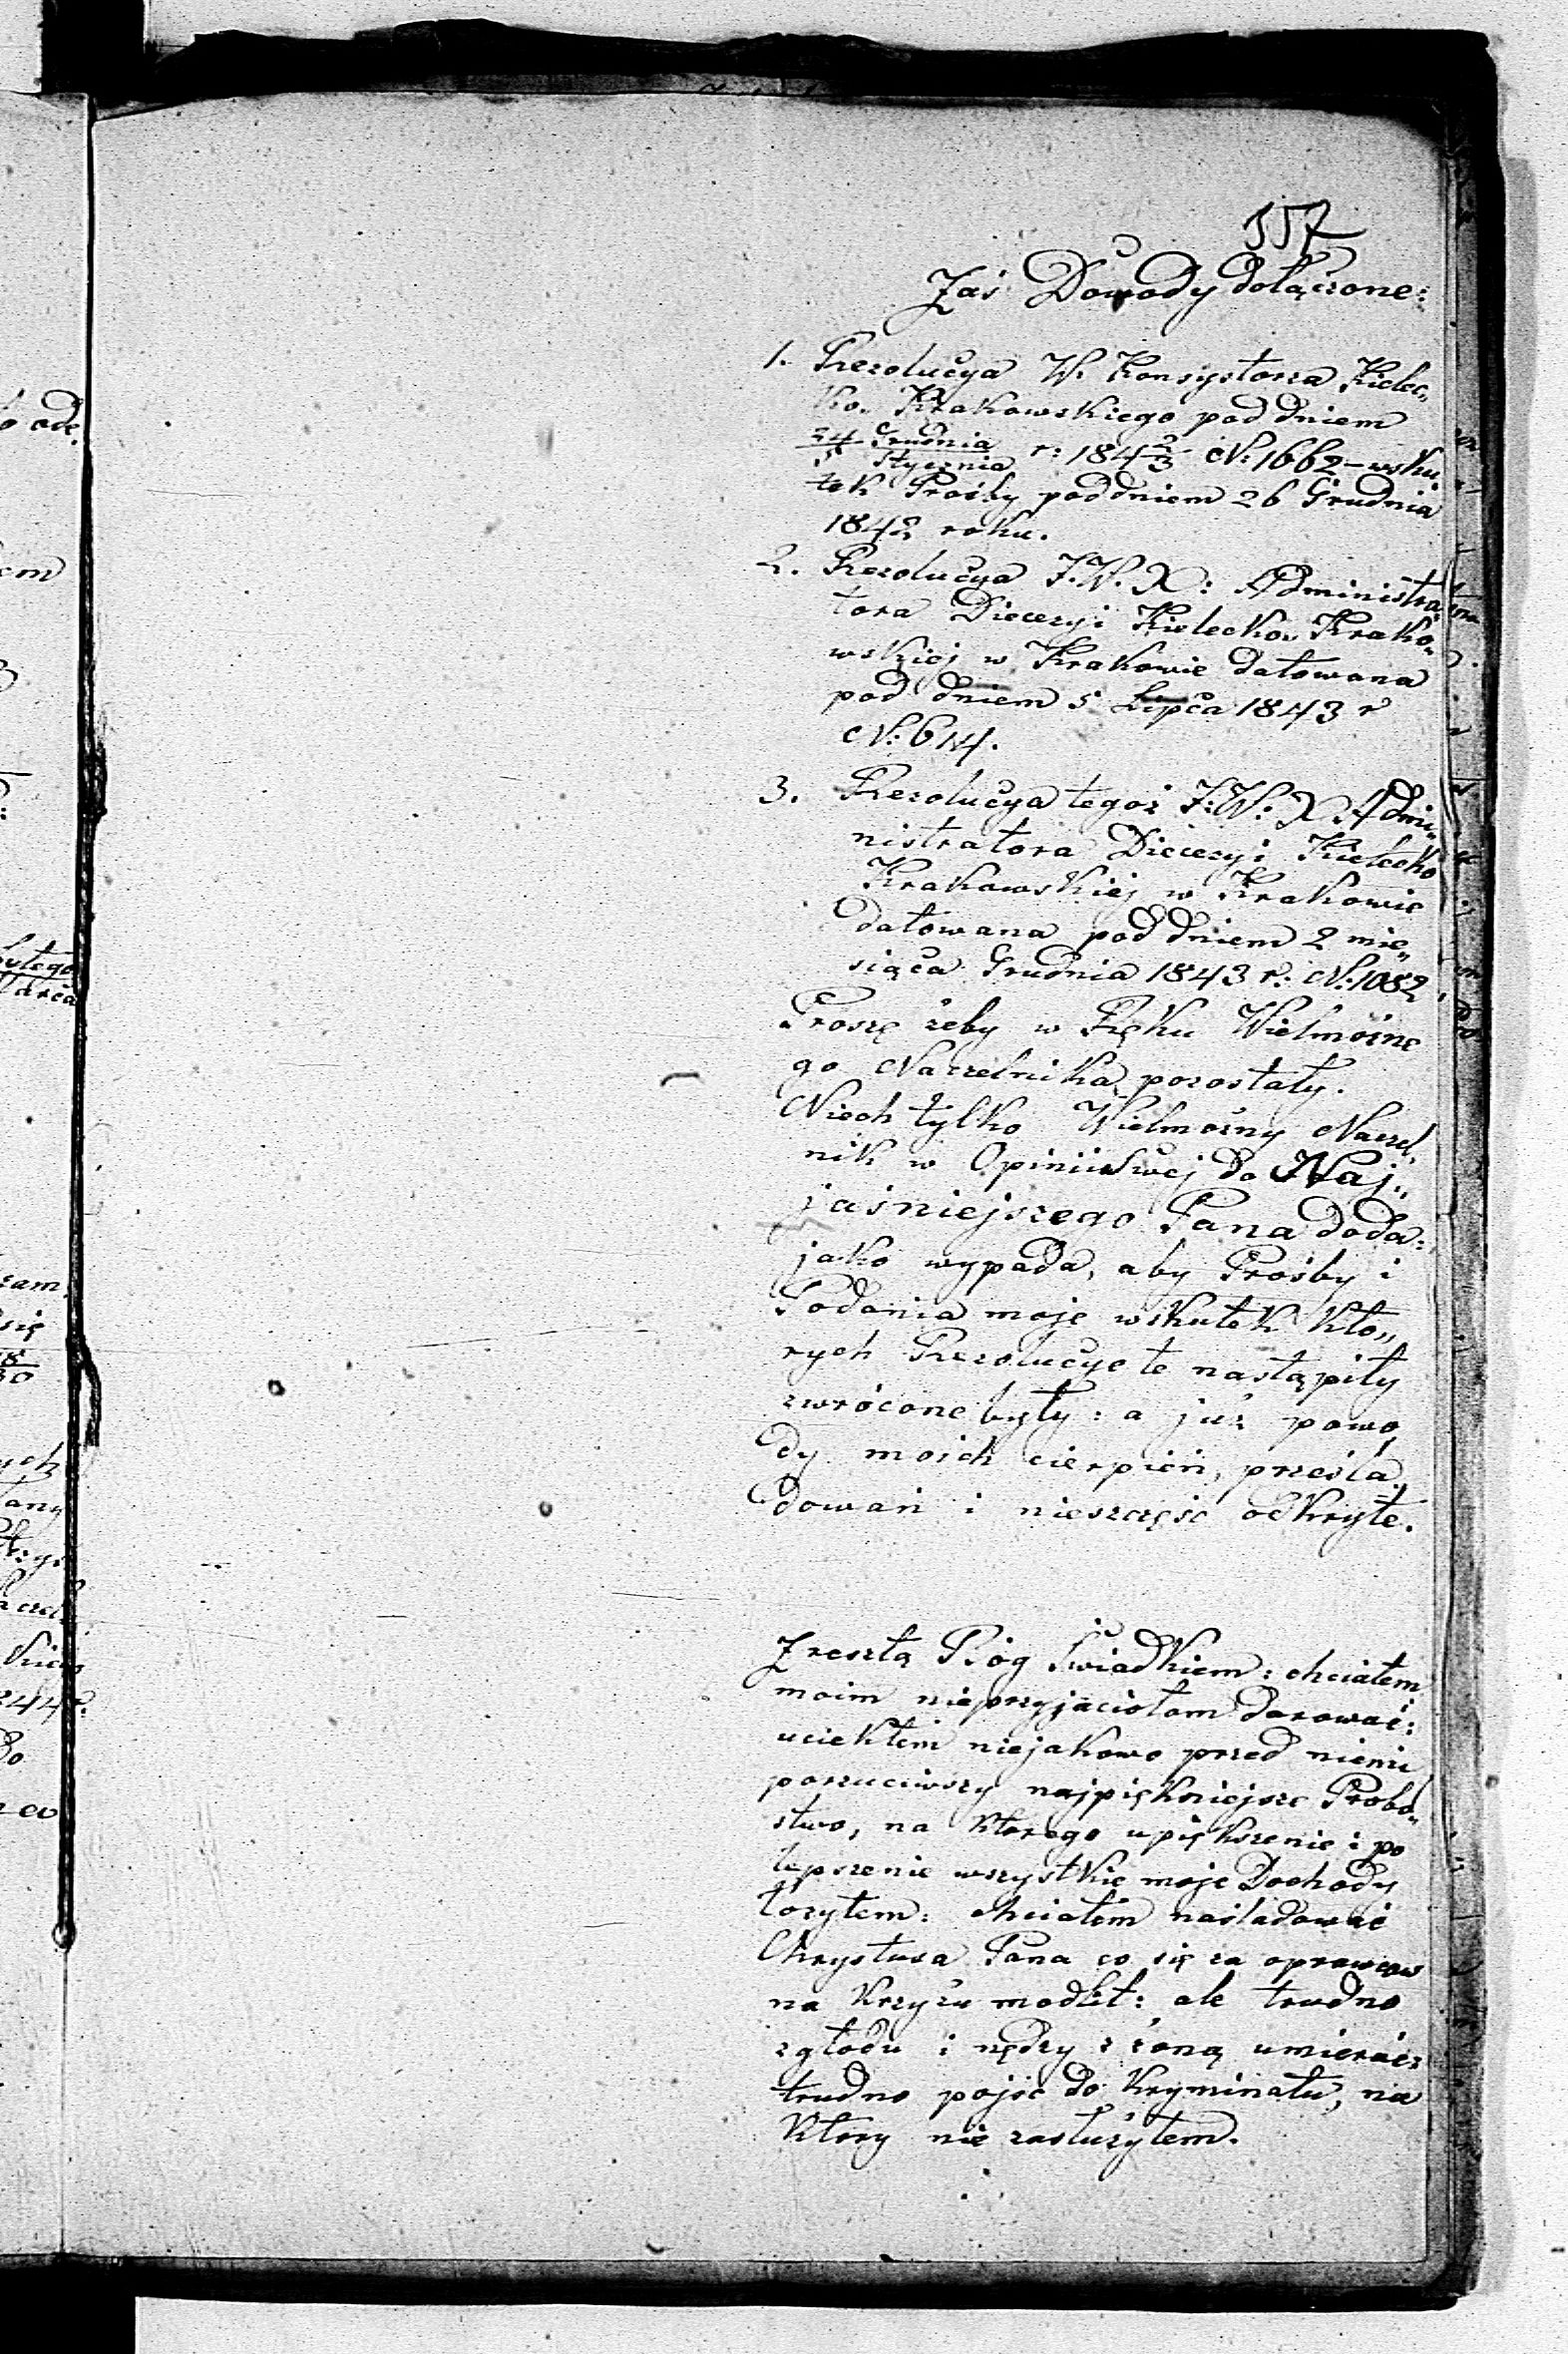 357
Zaś Dowody dołączone:
1. Rezolucya W. Konsystorza Kielec„
ko. Krakowskiego pod dniem
24 Grudnia / 5 Stycznia r: 184 2/3 N: 1662 – wsku„
tek Prośby pod dniem 26 Grudnia
1842 roku.
2. Rezolucya J.W.X: Administra„
tora Diecezyi Kielecko. Krako„
wskiej w Krakowie datowana
pod dniem 5 Lipca 1843 r
N: 614.
3. Rezolucya tegoż J:W:X Admi„
nistratora Diecezyi Kielecko
Krakowskiej w Krakowie
datowana pod dniem 2 mie„
siąca Grudnia 1843 r: N: 1082
Proszę żeby w Ręku Wielmożne
go Naczelnika pozostały.
Niech tylko Wielmożny Naczel„
nik w Opinii Swej do Naj„
jaśniejszego Pana doda:
jako wypada, aby Prośby i
Podania moje wskutek któ„
rych Rezolucye te nastąpiły
zwrócone były: a już powo„
dy moich cierpień, prześla„
dowań i nieszczęść odkryte.
Zresztą Bóg Świadkiem: chciałem
moim nieprzyjaciołom darować:
uciekłem niejakowo przed niemi
porzuciwszy najpiękniejsze Probo„
stwo, na którego upiększenie i po
lepszenie wszystkie moje Dochody
łożyłem: chciałem naśladować
Chrystusa Pana co się za oprawców
na krzyżu modlił: ale trudno
z głodu i nędzy z żoną umierać:
trudno pojść do kryminału, na
który nie zasłużyłem.